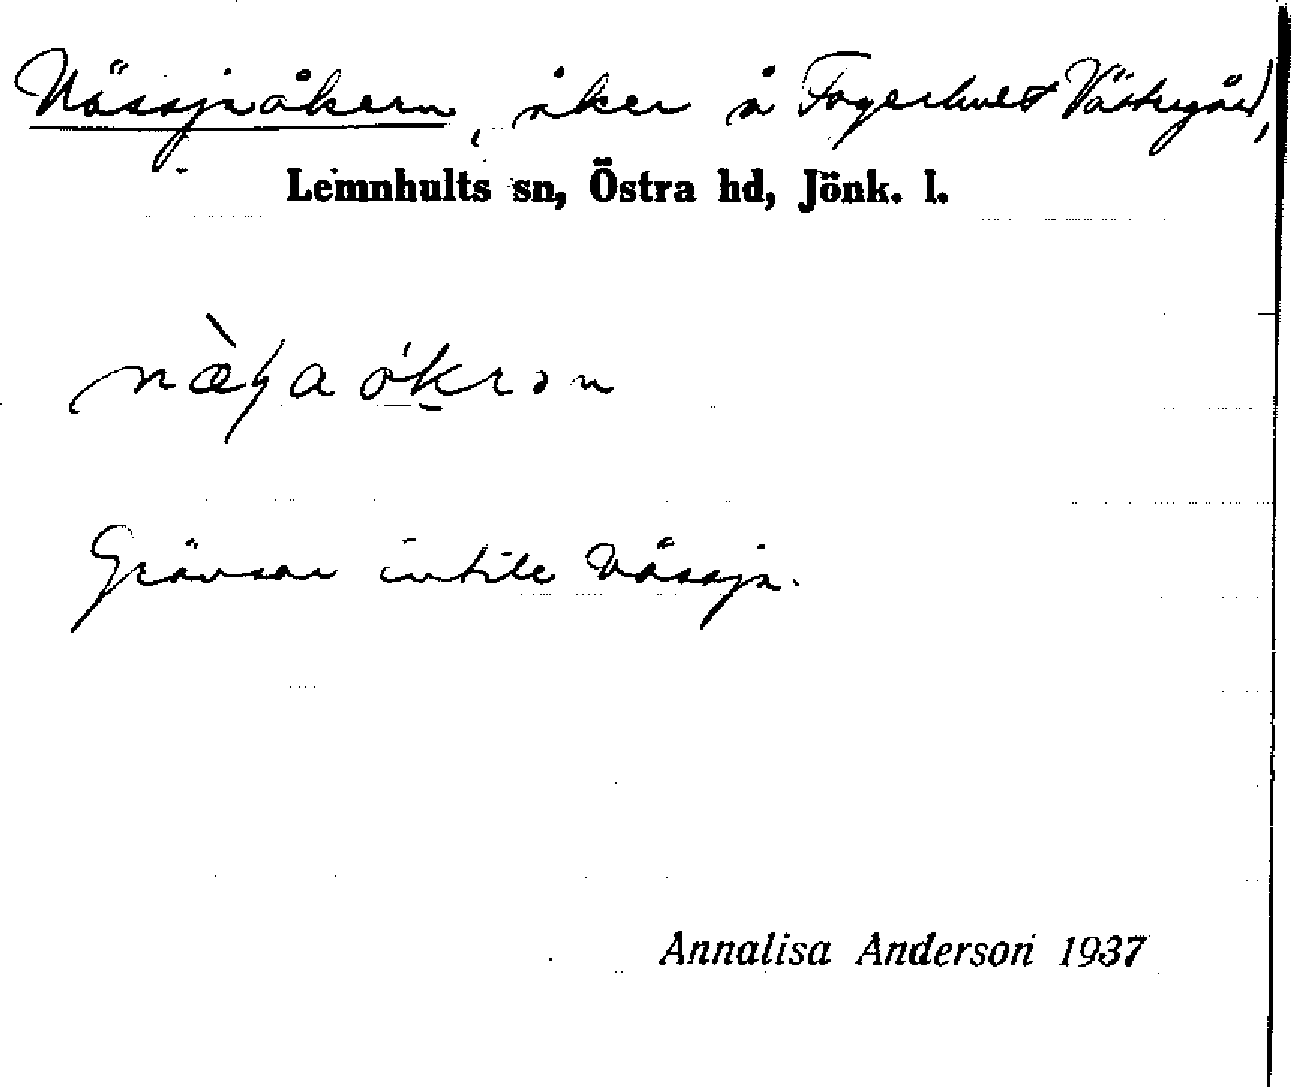 Nässjaåkern, åker å Fagerhult Västregård,
Lemnhults sn, Östra hd, Jönk. l.
Gränsar intill Nässja.
Annalisa Anderson 1937